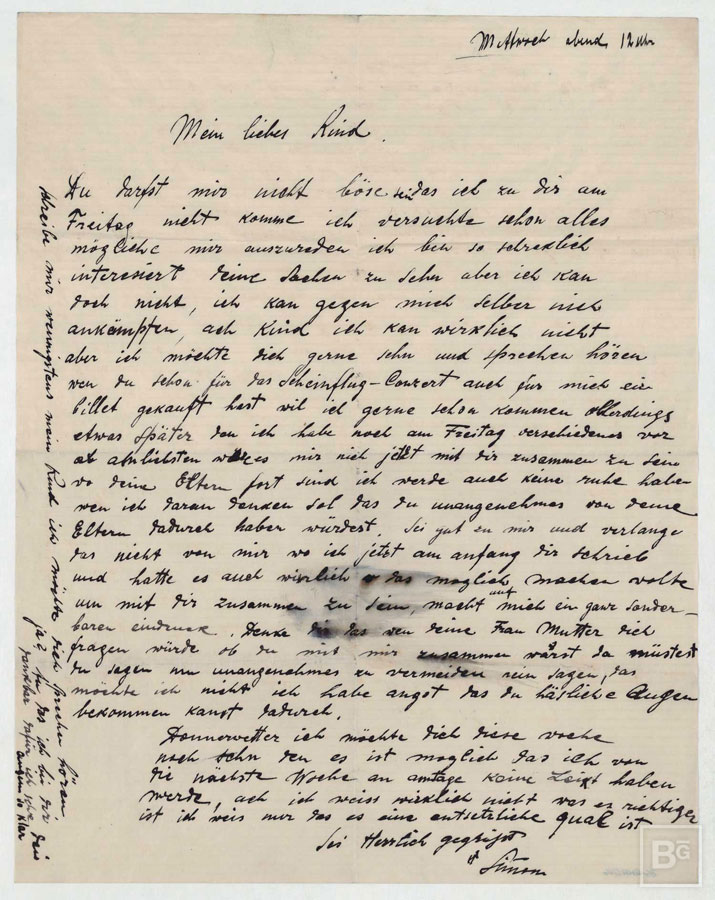 Mittwoch abend 12 Uhr
Mein liebes Kind.
Du darfst mir nicht böse sein das ich zu dir am
Freitag nicht komme ich versuchte schon alles
mögliche mir auszureden ich bin so schreklich
interesiert deine Sachen zu sehn aber ich kan
doch nicht, ich kan gegen mich selber nich
ankämpfen, ach Kind ich kan wirklich nicht
aber ich möchte dich gerne sehn und sprechen hören
wen du schon für das Scheinflug-Conzert auch für mich ein
billet gekauft hast wil ich gerne schon kommen allerdings
etwas später den ich habe noch am Freitag verschiedenes vor
am ähnlichsten wäre es mir nich jetzt mit dir zusammen zu sein
wo deine Eltern fort sind ich werde auch keine ruhe haben
wen ich daran denken sol das du unangenehmes von deine
Eltern dadurch haben würdest Sei gut zu mir und verlange
das nicht von mir wo ich jetzt am anfang dir schrieb
und hatte es auch wirklich das möglich machen wolte
um mit dir zusammen zu sein, macht auf mich ein ganz sonder-
baren eindruck. Denke dir das wen deine Frau Mutter dich
fragen würde ob du mit mir zusammen wärst da müstest
du sagen um unangenehmes zu vermeiden nein sagen, das
möchte ich nicht ich habe angst das du häsliche Augen
bekommen kanst dadurch.
Donnerwetter ich möchte dich diese woche
noch sehn den es ist möglich das ich von
die nächste Woche an amtage keine Zeit haben
werde, ach ich weiss wirklich nicht was es richtiger
ist ich weis nur das es eine entsetzliche qual ist
Sei Herrlich gegrüsst
Simon
schreibe mir wenigstens mein Kind ich möchte dich sprechen hören
ja? du, das ich bei dir
dankbar dafür ich sehe dein
augen so klar
BG